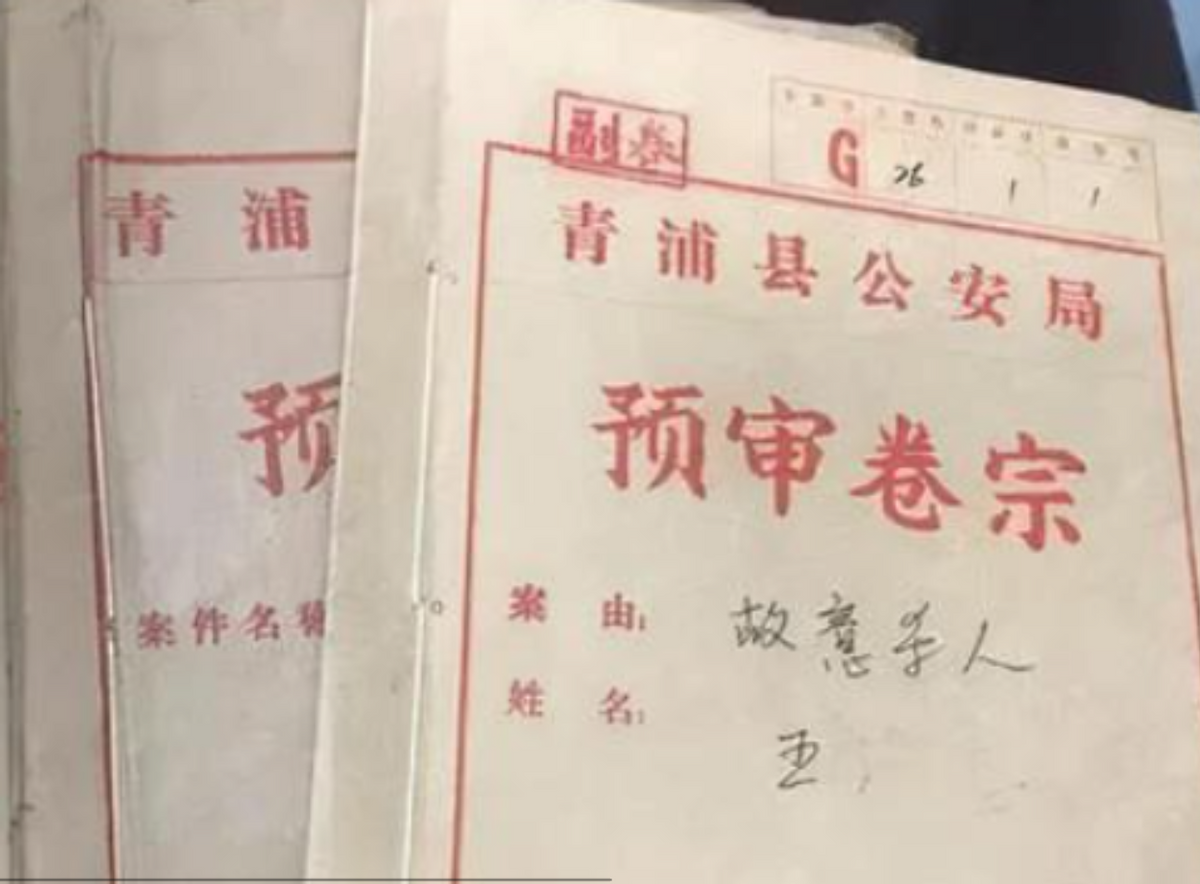 副卷
G 26 1 1
青浦县公安局
预审卷宗
案由：故意杀人
姓名：王
青浦
预
案件名称